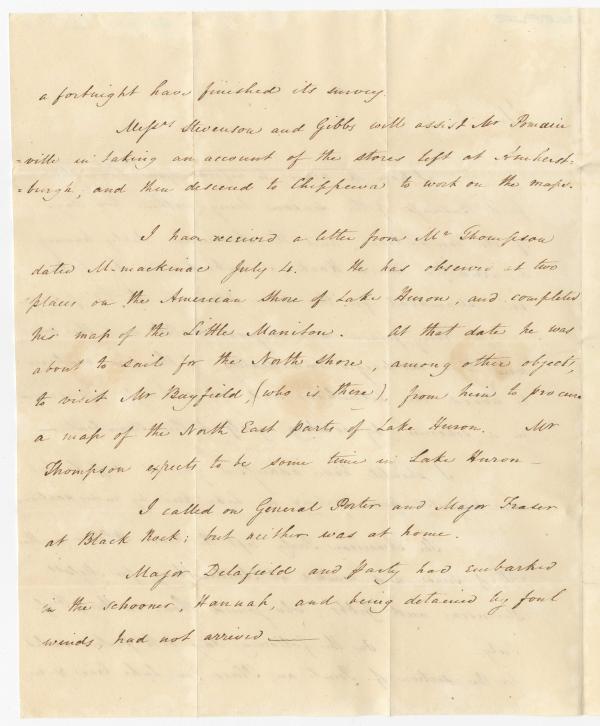 a fortnight have finished its survey.
Messrs Stevenson and Gibbs will assist Mr Pomain
=ville in taking an account of the stores left at Amherst-
=burgh, and then descend to Chippewa to work on the maps.
I have received a letter from Mr Thompson
dated M-mackinac July 4. He has observed at two
places on the American Shore of Lake Huron, and completed
his map of the Little Manitou. At that date he was
about to sail for the North shore, among other objects,
to visit Mr Bayfield, (who is there), from him to procure
a map of the North East parts of Lake Huron. Mr
Thompson expects to be some time in Lake Huron —
I called on General Porter and Major Fraser
at Black Rock; but neither was at home.
Major Delafield and party had embarked
in the schooner, Hannah, and being detained by foul
winds, had not arrived —